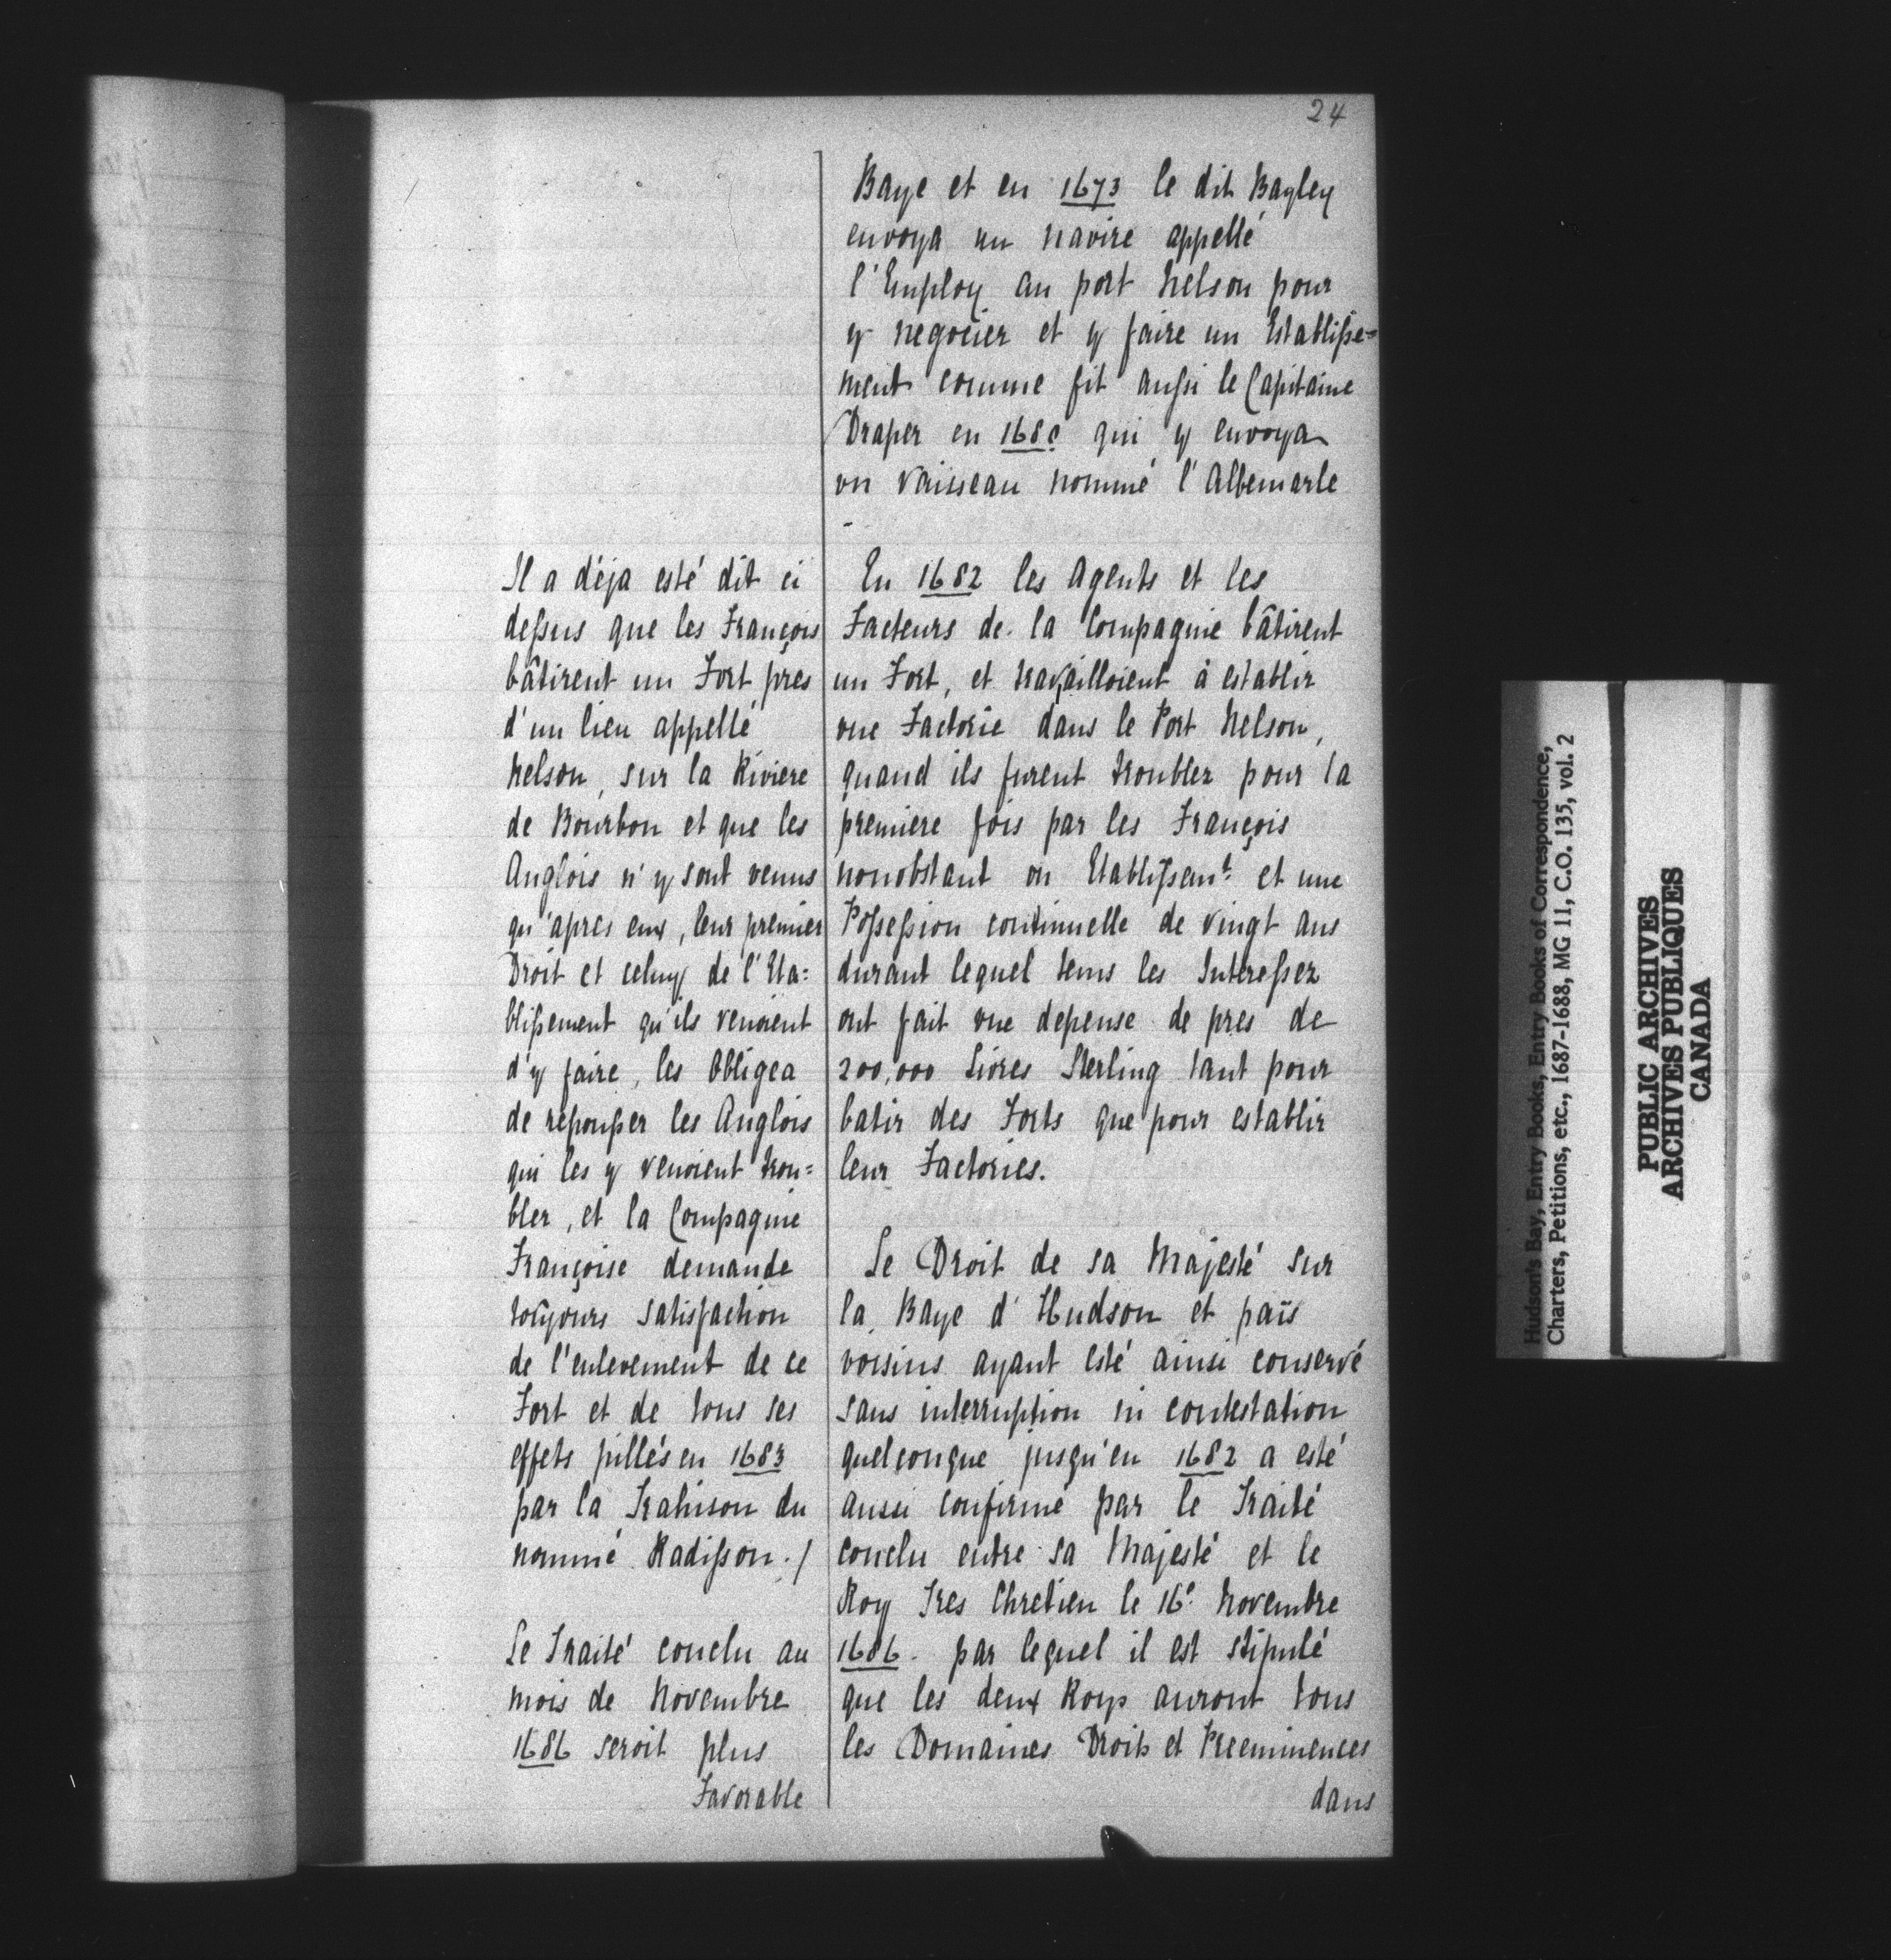 24
Baye et en 1673 le dit Bayley
envoya un navire appellé
l'Employ au port Nelson pour
y negocier et y faire un Establisse=
ment comme fit aussi le Capitaine
Draper en 1680 qui y envoya
vn Vaisseau nommé l'Albemarle
-
En 1682 les Agents et les
Facteurs de la Compagnie bâtirent
un Fort, et travailloient à establir
vne Factorie dans le Port Nelson,
quand ils furent troublez pour la
premiere fois par les François
nonobstant vn Etablissemt. et une
Possession continuelle de vingt ans
durant lequel tems les Interessez
ont fait vne depense de pres de
200,000 Livres Sterling tant pour
batir des Forts que pour establir
leur Factories.
Le Droit de sa Majesté sur
la Baye d'Hudson et païs
voisins ayant esté ainsi conservé
sans interruption ni contestation
quelconque jusqu'en 1682 a esté
aussi confirmé par le Traité
conclu entre sa Majesté et le
Roy Tres Chretien le 16e Novembre
1686. par lequel il est stipulé
que les deux Roys auront tous
les Domaines Droits et Preeminences
dans
Il a déja esté dit ci
dessus que les François
bâtirent un Fort pres
d'un lieu appellé
Nelson, sur la Riviere
de Bourbon et que les
Anglois n'y sont venus
qu'apres eux, leur premier
Droit et celuy de l'Eta=
blissement qu'ils venoient
d'y faire, les obligea
de repousser les Anglois
qui les y venoient trou=
bler, et la Compagnie
Françoise demande
toujours satisfaction
de l'enlevement de ce
Fort et de tous ses
effets pillés en 1683
par la Trahison du
nommé Radisson ./
Le Traité conclu au
mois de Novembre
1686 seroit plus
Favorable
Hudson's Bay, Entry Books, Entry Books of Correspondence,
Charters, Petitions, etc., 1687-1688, MG 11, C.O. 135, vol. 2
PUBLIC ARCHIVES
ARCHIVES PUBLIQUES
CANADA